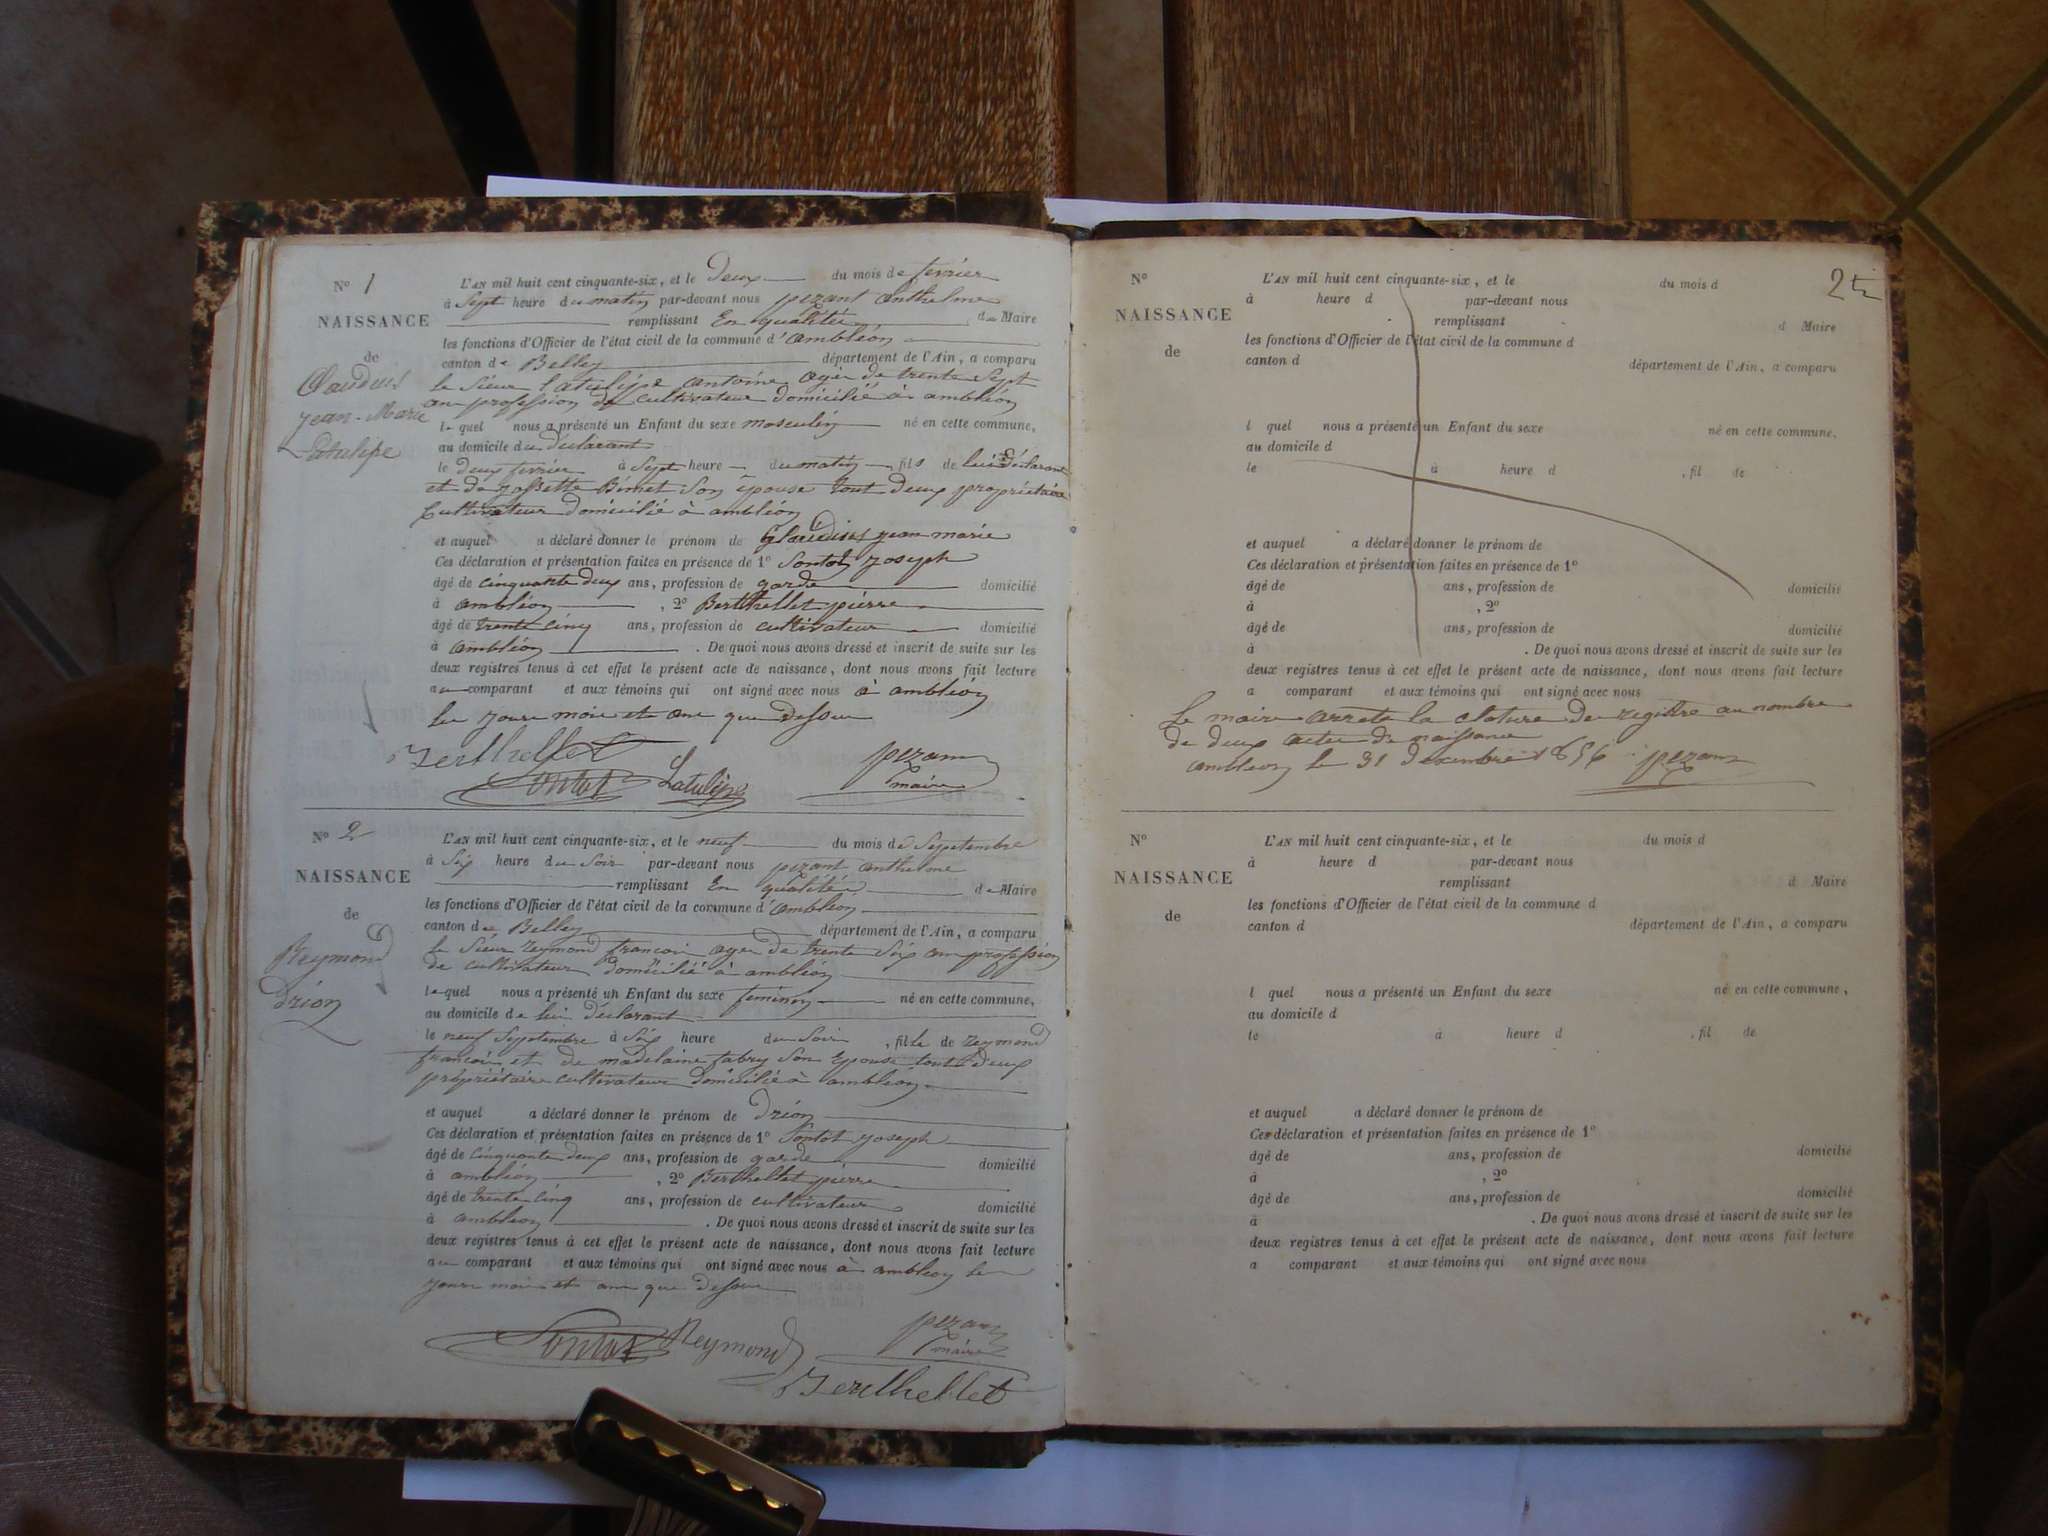 N° 1
NAISSANCE
de
Claudius
jean-Marie
Latulipe
L'AN mil huit cent cinquante-six, et le Deux du mois de fevrier
à Sept heure du matin par-devant nous pezant anthelme
remplissant En qualitée de Maire
les fonctions d'Officier de l'état civil de la commune d'ambléon
canton de Belley département de l'Ain, a comparu
le Sieur Latulipe antoine agé de trente Sept
an profession de cultivateur domicilié à ambléon
le quel nous a présenté un Enfant du sexe masculin né en cette commune,
au domicile du déclarant
le deux fevrier à Sept heure du matin fils de lui déclarant
et de Jossette Binet Son épouse tout deux propriétaire
Cultivateur domicilié à ambléon
et auquel a déclaré donner le prénom de Claudius jean marie
Ces déclaration et présentation faites en présence de 1° Sontot joseph
âgé de cinquante deux ans, profession de garde domicilié
à ambléon , 2° Berthellet pierre
âgé de trente cinq ans, profession de cultivateur domicilié
à ambléon . De quoi nous avons dressé et inscrit de suite sur les
deux registres tenus à cet effet le présent acte de naissance, dont nous avons fait lecture
au comparant et aux témoins qui ont signé avec nous à ambléon
les jour mois et an que dessus
Berthellet pezant
Sontot Latulipe maire
N° 2
NAISSANCE
de
Reymond
Drion
L'AN mil huit cent cinquante-six, et le neuf du mois de Septembre
à Six heure du Soir par-devant nous pezant anthelme
remplissant En qualitée de Maire
les fonctions d'Officier de l'état civil de la commune d'ambléon
canton de Belley département de l'Ain, a comparu
le Sieur reymond francois agé de trente Six an profession
de cultivateur domicilié à ambléon
le quel nous a présenté un Enfant du sexe feminin né en cette commune,
au domicile de lui déclarant
le neuf Septembre à Six heure du Soir , fille de reymond
francois et de madelaine fabry Son Epouse tout deux
propriétaire cultivateur domicilié à ambléon
et auquel a déclaré donner le prénom de Drion
Ces déclaration et présentation faites en présence de 1° Sontot joseph
âgé de cinquante deux ans, profession de garde domicilié
à ambléon , 2° Berthellet pierre
âgé de trente cinq ans, profession de cultivateur domicilié
à ambléon . De quoi nous avons dressé et inscrit de suite sur les
deux registres tenus à cet effet le présent acte de naissance, dont nous avons fait lecture
au comparant et aux témoins qui ont signé avec nous à ambléon le
jour mois et an que dessus
Sontot Reymond pezant
maire
Berthellet
2
N°
NAISSANCE
de
L'AN mil huit cent cinquante-six, et le du mois d
à heure d par-devant nous
remplissant d Maire
les fonctions d'Officier de l'état civil de la commune d
canton d département de l'Ain, a comparu
l quel nous a présenté un Enfant du sexe né en cette commune,
au domicile d
le à heure d , fil de
et auquel a déclaré donner le prénom de
Ces déclaration et présentation faites en présence de 1°
âgé de ans, profession de domicilié
à , 2°
âgé de ans, profession de domicilié
à . De quoi nous avons dressé et inscrit de suite sur les
deux registres tenus à cet effet le présent acte de naissance, dont nous avons fait lecture
a comparant et aux témoins qui ont signé avec nous
Le maire arrete la cloture de registre au nombre
de deux actes de naissance
ambléon le 31 dexembre 1856 pezant
N°
NAISSANCE
de
L'AN mil huit cent cinquante-six, et le du mois d
à heure d par-devant nous
remplissant d Maire
les fonctions d'Officier de l'état civil de la commune d
canton d département de l'Ain, a comparu
l quel nous a présenté un Enfant du sexe né en cette commune,
au domicile d
le à heure d , fil de
et auquel a déclaré donner le prénom de
Ces déclaration et présentation faites en présence de 1°
âgé de ans, profession de domicilié
à , 2°
âgé de ans, profession de domicilié
à . De quoi nous avons dressé et inscrit de suite sur les
deux registres tenus à cet effet le présent acte de naissance, dont nous avons fait lecture
a comparant et aux témoins qui ont signé avec nous